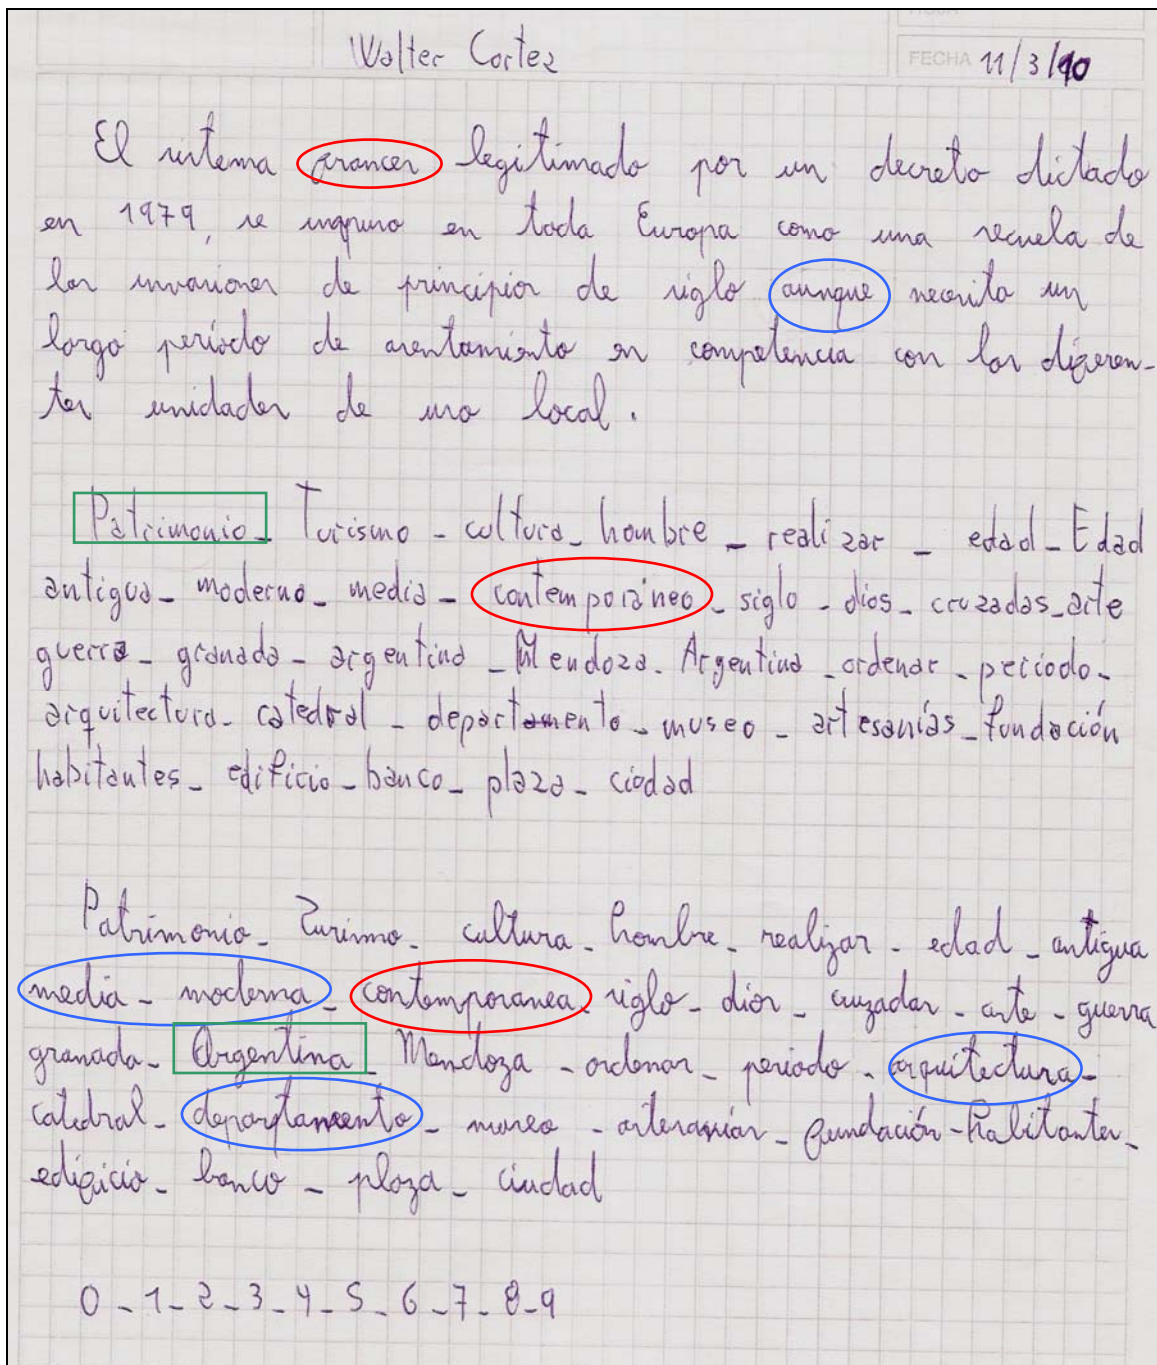 Walter Cortez
FECHA 11/3/90
El sistema frances legitimado por un decreto dictado
en 1979, se impuso en toda Europa como una secuela de
las invasiones de principios de siglo aunque necesito un
largo período de asentamiento en competencia con las diferen-
tes unidades de uso local.
Patrimonio_ Turismo - cultura_ hombre _ realizar _ edad_ Edad
antigua_ moderno_ media_ contemporáneo_ siglo _ dios_ cruzadas_arte
guerra_ granada_ argentina _ Mendoza_ Argentina _ordenar _ período_
arquitectura_ catedral _ departamento _ museo _ artesanías_ fundación
habitantes_ edificio_ banco_ plaza_ ciudad
Patrimonio_ Turismo_ cultura_ hombre_ realizar _ edad _ antigua
media _ moderna _ contemporanea_ siglo_ dios _ cruzadas _ arte _ guerra
granada_ Argentina _ Mendoza _ ordenar_ periodo _ arquitectura_
catedral_ departamento_ museo _ artesanías_ fundación_ habitantes_
edificio_ banco _ plaza _ ciudad
0_1_2_3_4_5_6_7_8_9